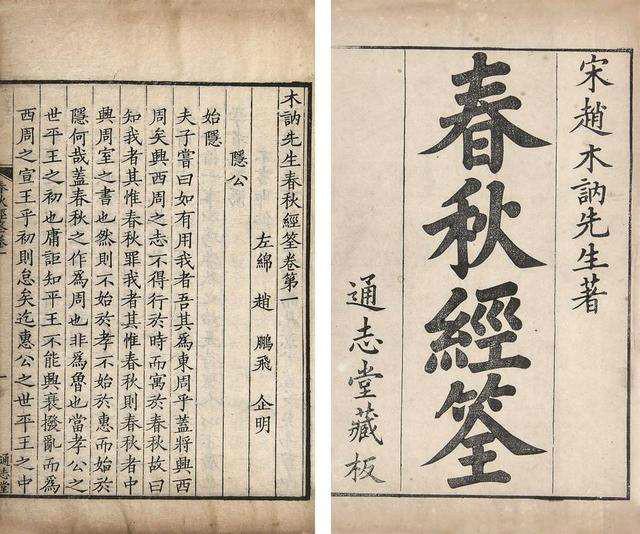 宋趙木訥先生著
春秋經筌
通志堂藏板
木訥先生春秋經筌卷第一
左綿 趙 鵬飛 企明
隱公
始隱
夫子嘗曰如有用我者吾其爲東周乎蓋將興西
周矣興西周之志不得行於時而寓於春秋故曰
知我者其惟春秋罪我者其惟春秋則春秋者中
興周室之書也然則不始於孝不始於惠而始於
隱何哉蓋春秋之作爲周也非爲魯也當孝公之
世平王之初也庸詎知平王不能興衰撥亂而爲
西周之宣王乎初則怠矣迄惠公之世平王之中
一
通志堂